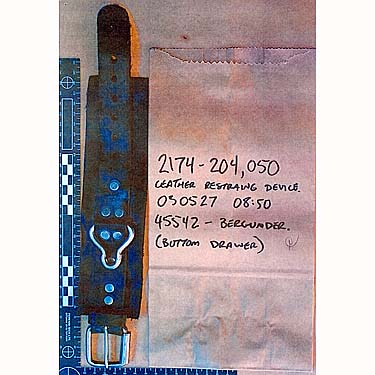 2174-204,050
LEATHER RESTRAING DEVICE.
030527 08:50
45542 - BERGUNDER.
(BOTTOM DRAWER)